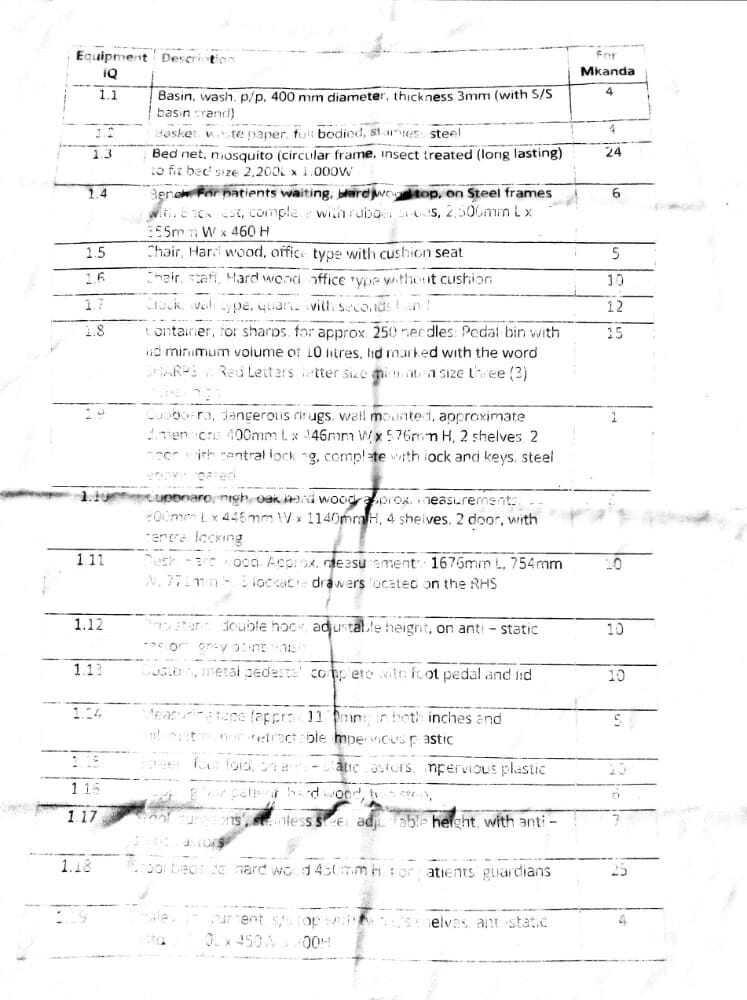 Equipment Description For
iQ Mkanda
1.1 Basin, wash, p/p, 400 mm diameter, thickness 3mm (with S/S 4
basin stand)
1.2 Basket, waste paper, full bodied, stainless steel 4
1.3 Bed net, mosquito (circular frame, insect treated (long lasting) 24
to fit bed size 2,200L x 1,000W
1.4 Bench, For patients waiting, Hard wood top, on Steel frames 6
with back rest, complete with rubber shoes, 2,500mm L x
355mm W x 460 H
1.5 Chair, Hard wood, office type with cushion seat 5
1.6 Chair, staff, Hard wood office type without cushion 10
1.7 Clock, wall type, quartz with seconds hand 12
1.8 Container, for sharps, for approx. 250 needles: Pedal bin with 15
lid minimum volume of 10 litres, lid marked with the word
SHARPS in Red Letters, letter size minimum size three (3)
1.9 Cupboard, dangerous drugs, wall mounted, approximate 1
dimensions 400mm L x 446mm W x 576mm H, 2 shelves, 2
door, with central locking, complete with lock and keys, steel
epoxy coated
1.10 Cupboard, high, oak hard wood approx. measurements:
mm L x 446mm W x 1140mm H, 4 shelves, 2 door, with
central locking
1.11 Desk, Hard wood, Approx. measurement: 1676mm L, 754mm 10
W, 771mm H, 3 lockable drawers located on the RHS
1.12 Drip stand, double hook, adjustable height, on anti – static 10
castors, grey paint finish
1.13 Dustbin, metal pedestal complete with foot pedal and lid 10
1.14 Measuring tape (approx in both inches and 5
non-retractable impervious plastic
1.15 Screen, four fold, on anti – static castors, impervious plastic
1.16 patient, hard wood, two step, 6
1.17 Stool, surgeons', stainless steel adjustable height, with anti – 7
static castors
1.18 Stool bedside, hard wood 450mm H. For patients' guardians 25
1.19 s/s top with shelves, anti-static 4
x 450W x H